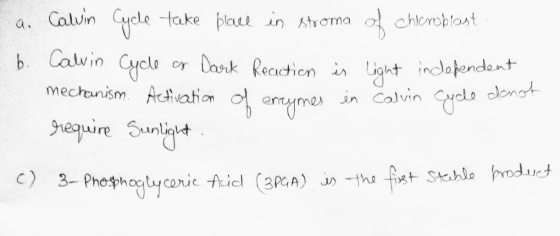 a. Calvin Cycle take place in stroma of chloroplast
b. Calvin Cycle or Dark Reaction is light independent
mechanism. Activation of enzymes in Calvin Cycle donot
require Sunlight.
c) 3-Phosphoglyceric Acid (3PGA) is the first stable product